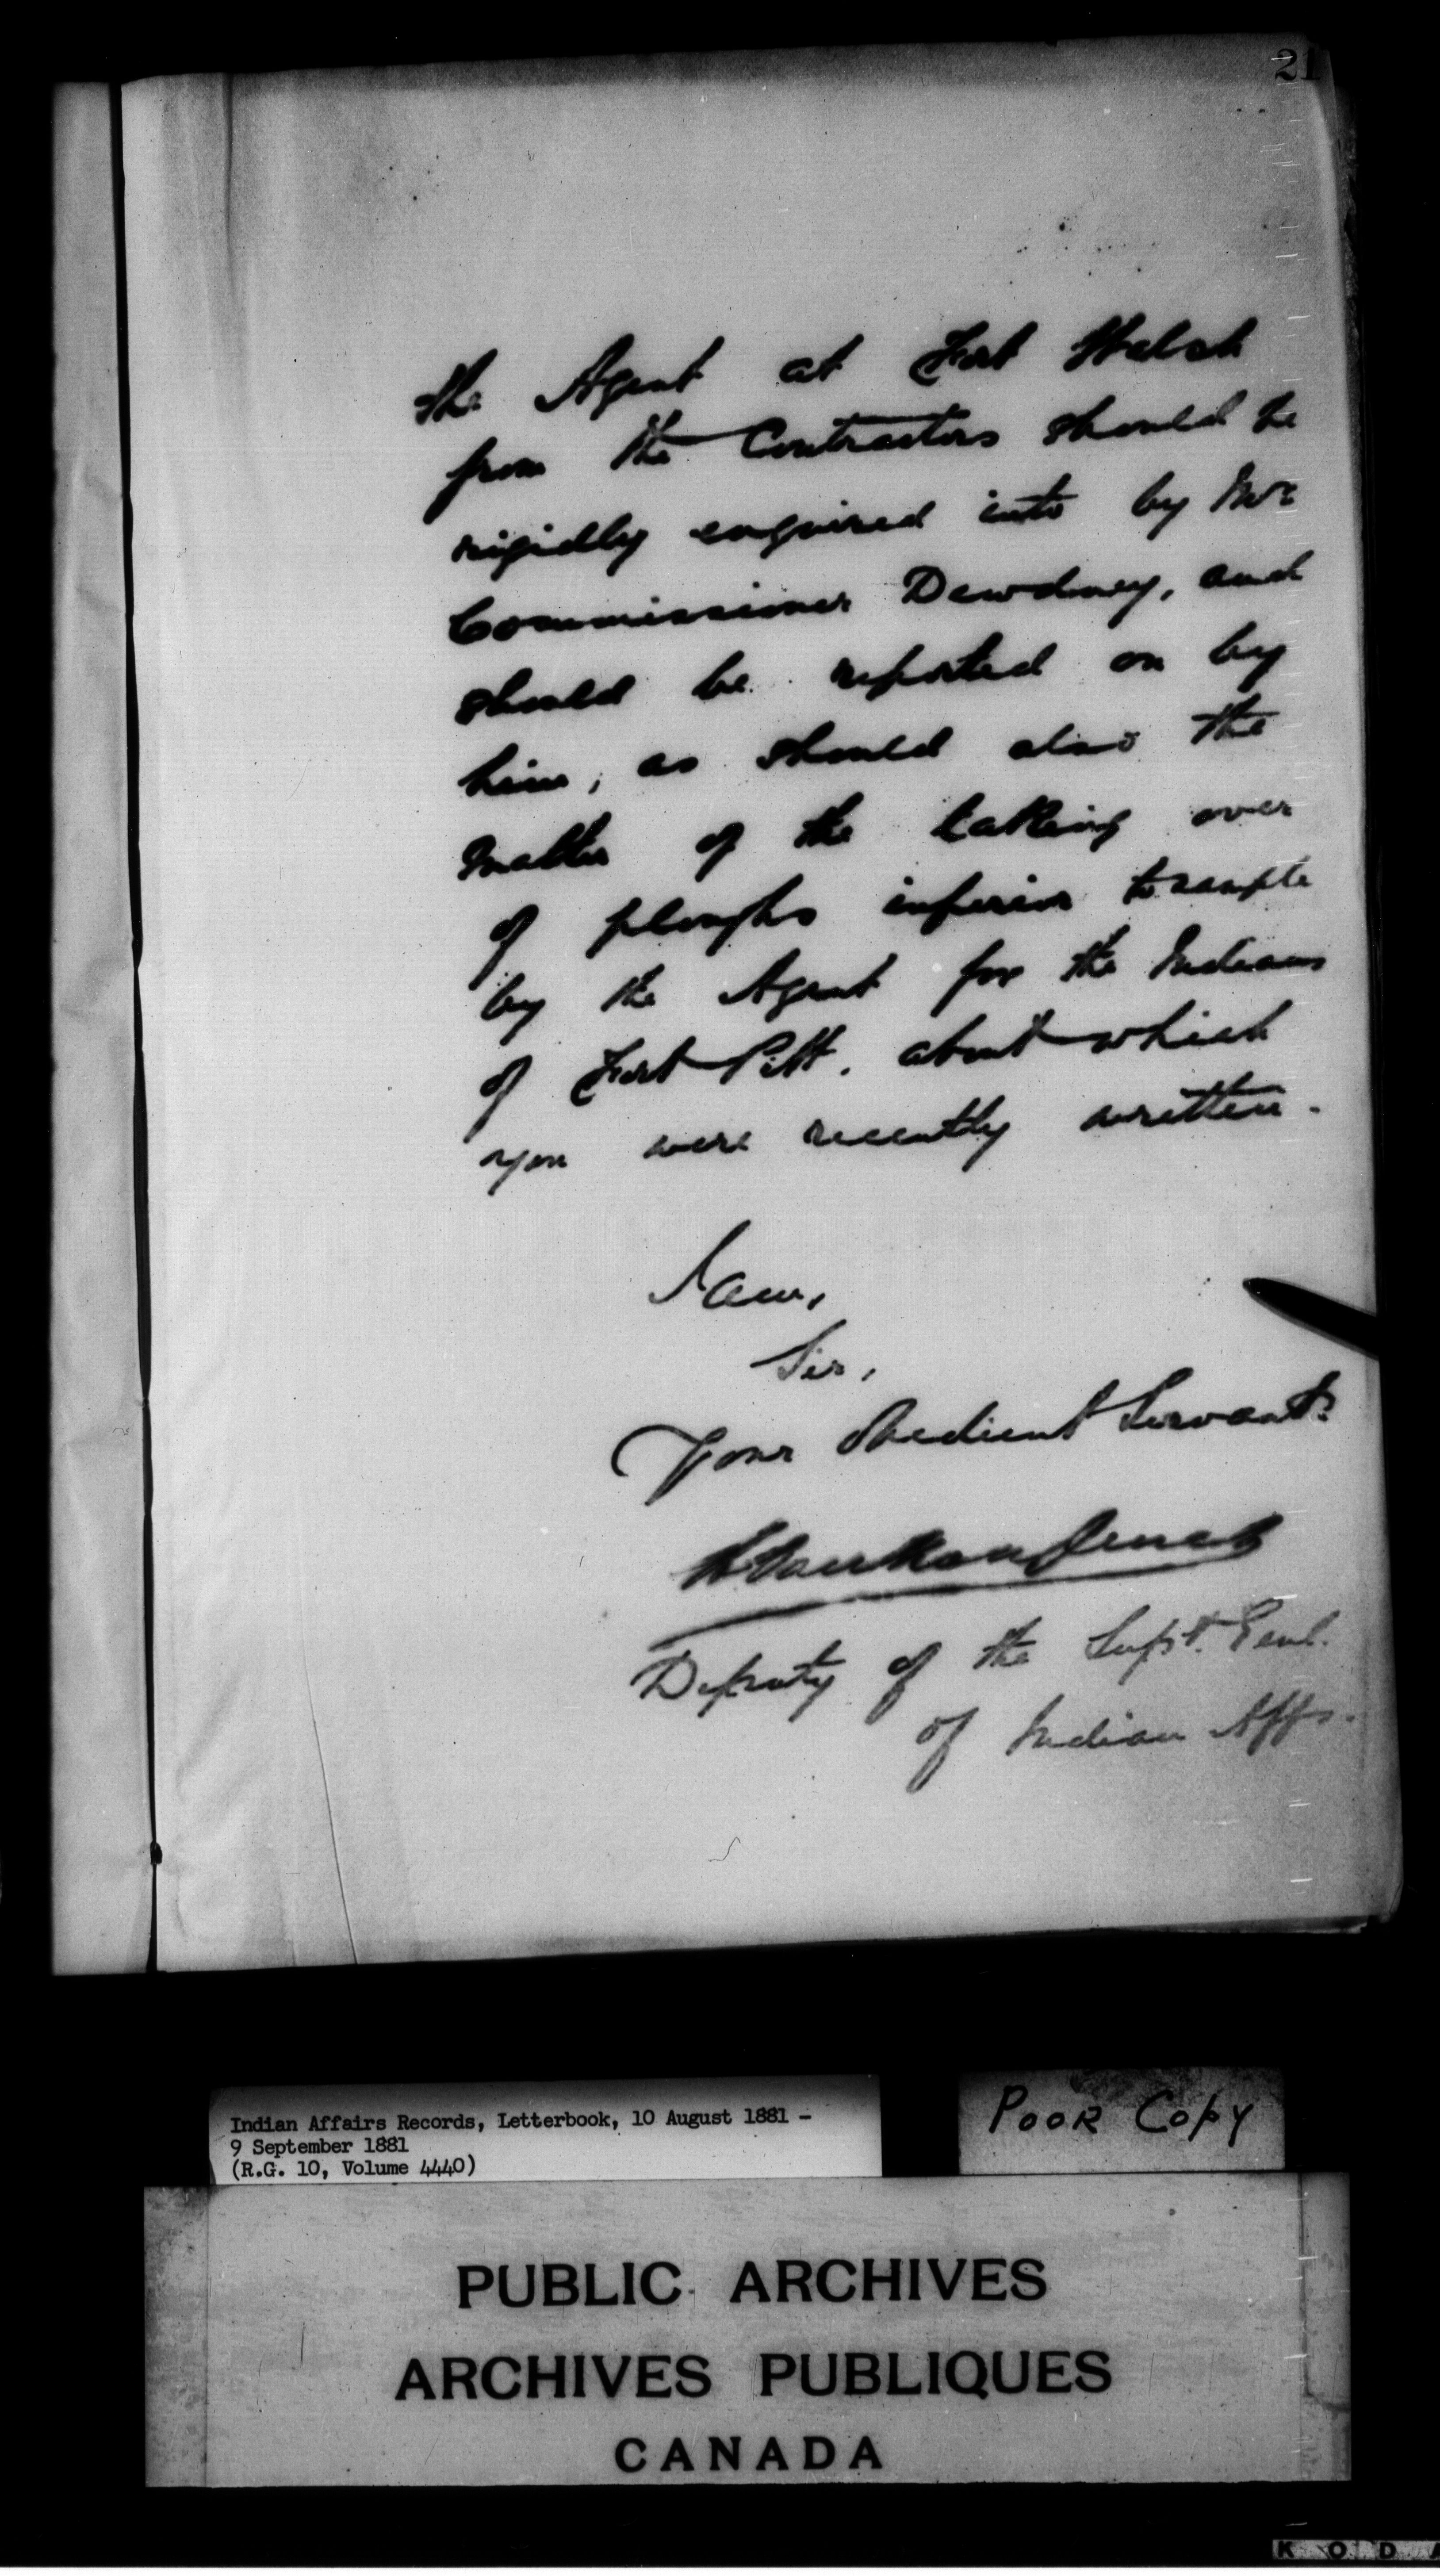 21
the Agent at Fort Walsh
from the Contractors should be
rigidly enquired into by Mr
Commissioner Dewdney, and
should be reported on by
him, as should also the
matter of the taking over
of ploughs inferior to sample
by the Agent for the Indians
of Fort Pitt, about which
you were recently written.
I am,
Sir,
Your Obedient Servant
L Vankoughnet
Deputy of the Supt. Genl.
of Indian Affs.
Indian Affairs Records, Letterbook, 10 August 1881 -
9 September 1881
(R.G. 10, Volume 4440)
POOR COPY
PUBLIC ARCHIVES
ARCHIVES PUBLIQUES
CANADA
KODA